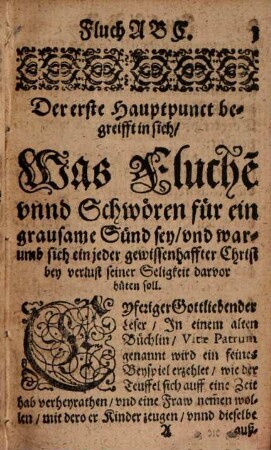 Fluch A B C. 1
Der erste Hauptpunct be-
greifft in sich/
Was Fluchẽ
vnnd Schwören für ein
grausame Sünd sey/vnd war-
umb sich ein jeder gewissenhaffter Christ
bey verlust seiner Seligkeit darvor
hüten soll.
Eyferiger Gottliebender
Leser / In einem alten
Büchlin / Vitæ Patrum
genannt wird ein feines
Beyspiel erzehlet / wie der
Teuffel sich auff eine Zeit
hab verheyrathen / vnd eine Fraw nem̃en wol-
len / mit dero er Kinder zeugen / vnnd dieselbe
A auß-